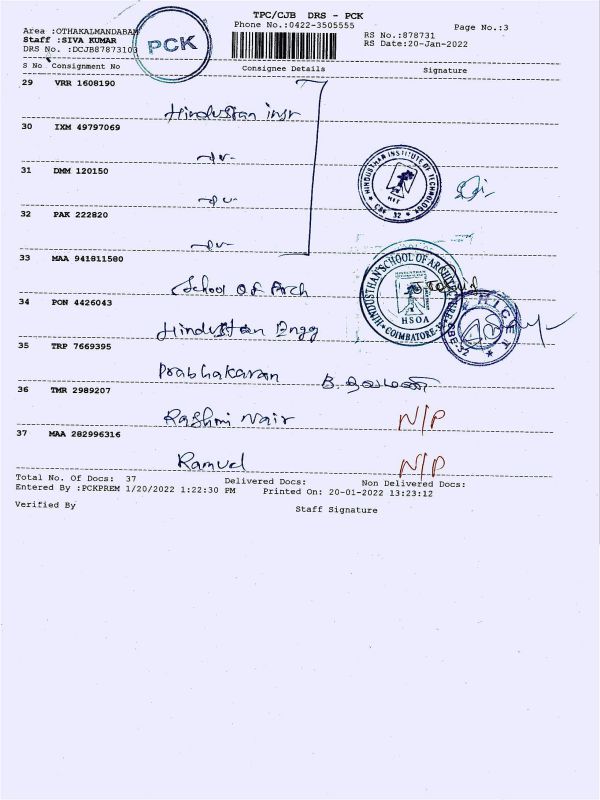 TPC/CJB DRS - PCK
Phone No.:0422-3505555
Page No.:3
Area :OTHAKALMANDABAM
RS No.:878731
Staff :SIVA KUMAR
RS Date:20-Jan-2022
DRS No. :DCJB87873103
PCK
S No Consignment No Consignee Details Signature
29 VRR 1608190
Hindustan inst
30 IXM 49797069
31 DMM 120150
HINDUSTHAN INSTITUTE OF TECHNOLOGY
HIT
CBE 32
32 PAK 222820
33 MAA 941811580
School of Arch
HINDUSTHAN SCHOOL OF
HSOA
COIMBATORE
34 PON 4426043
Hindustan Engg
35 TRP 7669395
Prabhakaran B. தவமணி
36 TMR 2989207
Rashmi Nair N/P
37 MAA 282996316
Ramvel N/P
Total No. Of Docs: 37 Delivered Docs: Non Delivered Docs:
Entered By :PCKPREM 1/20/2022 1:22:30 PM Printed On: 20-01-2022 13:23:12
Verified By Staff Signature